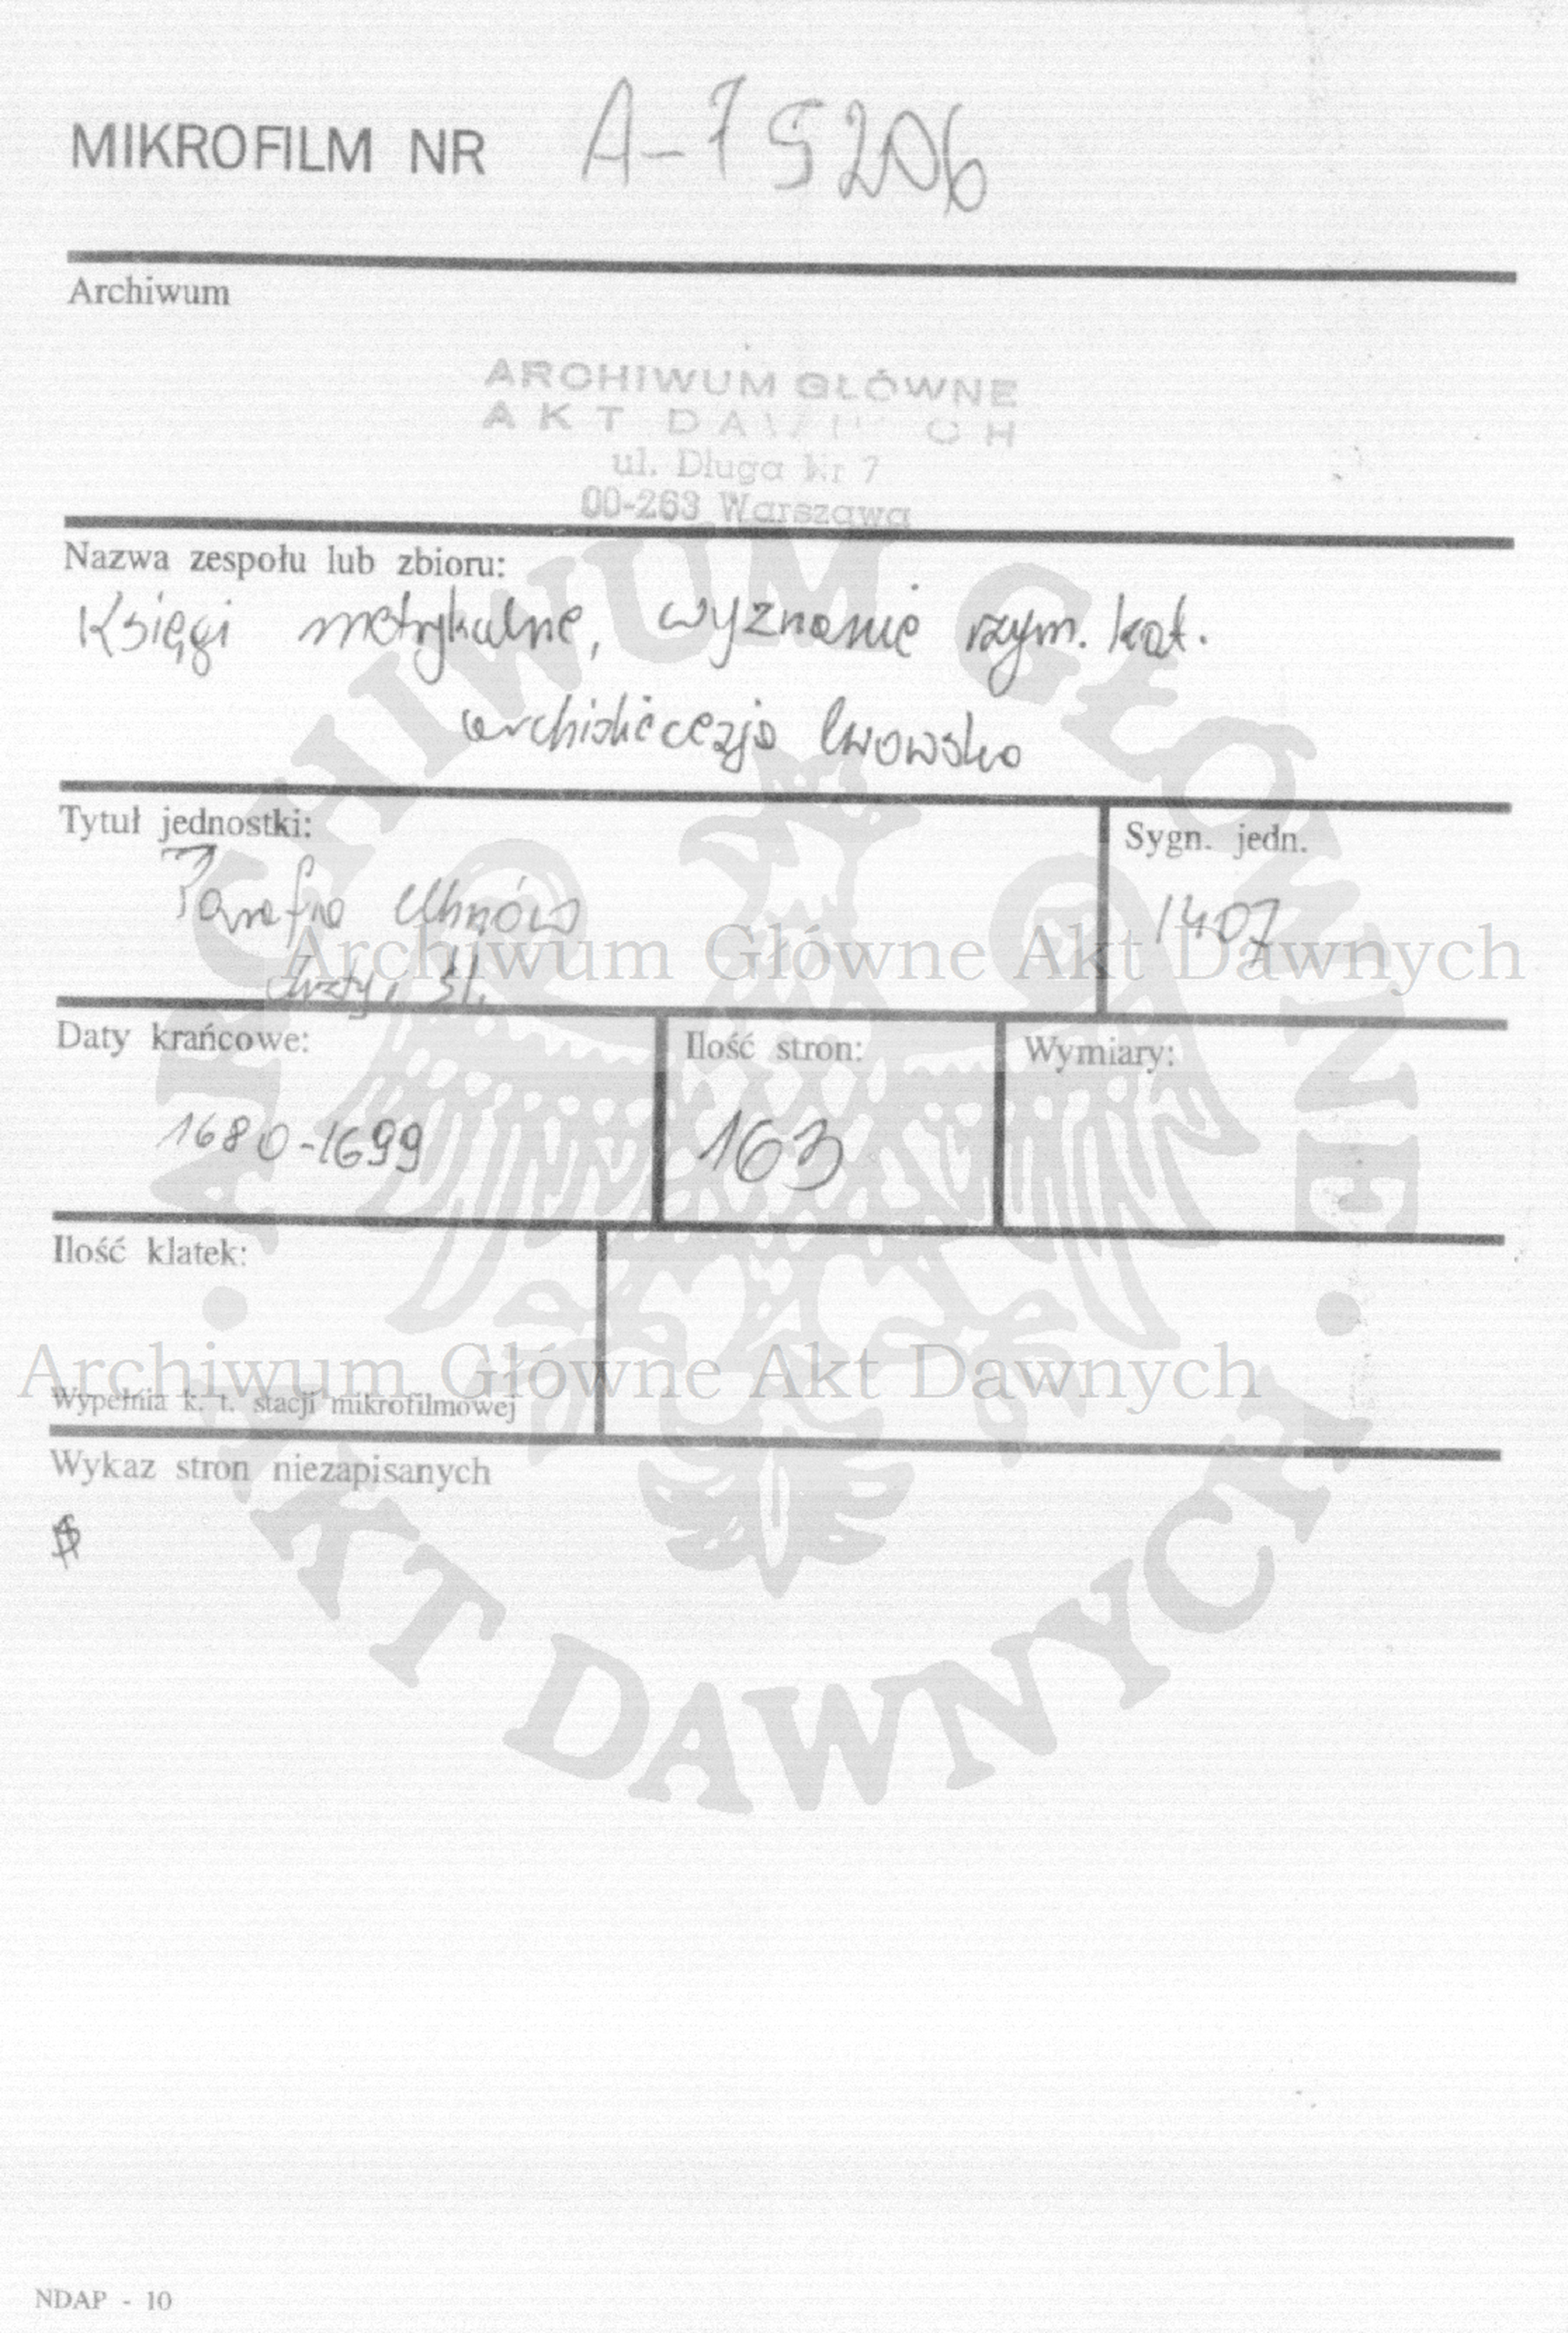 MIKROFILM NR A-75206
Archiwum
ARCHIWUM GŁÓWNE
AKT DAWNYCH
ul. Długa Nr 7
00-263 Warszawa
Nazwa zespołu lub zbioru:
Księgi metrykalne, wyznanie rzym. kat.
archidiecezja lwowska
Tytuł jednostki:
Sygn. jedn.
Parafia Uhnów
1407
Archiwum Główne Akt Dawnych
chrzty, śl.
Daty krańcowe:
Ilość stron:
Wymiary:
1680-1699
163
Ilość klatek:
Archiwum Główne Akt Dawnych
Wypełnia k. t. stacji mikrofilmowej
Wykaz stron niezapisanych
ARCHIWUM GŁÓWNE
AKT DAWNYCH
NDAP - 10